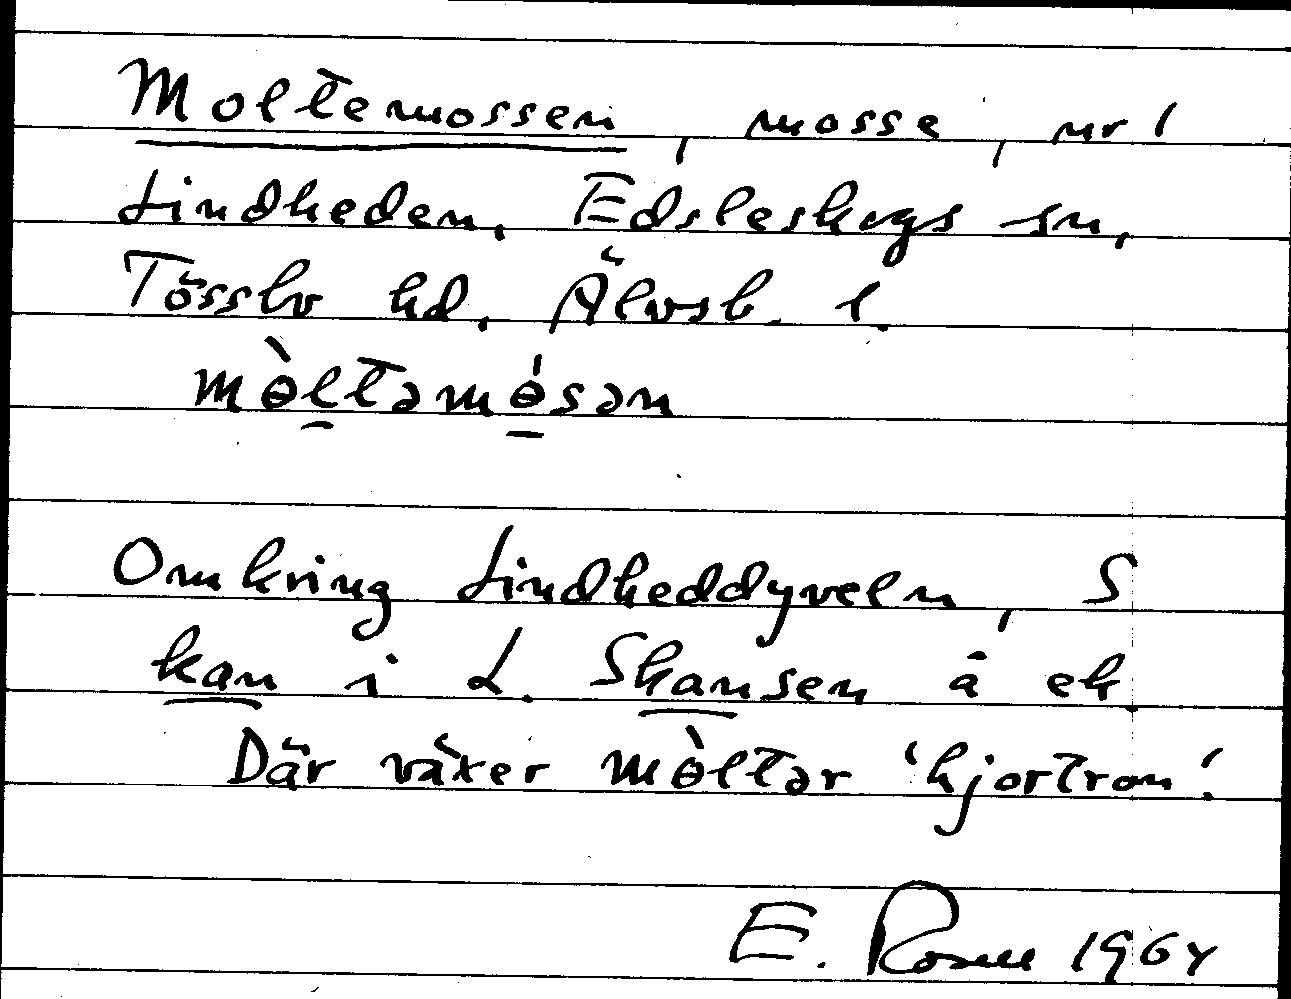 Moltemossen, mosse, nr 1
Lindheden, Edsleskogs sn,
Tössbo hd, Älvsb. l.
mɵ̀ltəmɵ́sən
Omkring Lindheddyveln, S
kan i L. Skansen å ek.
Där växer mɵ̀ltər 'hjortron'.
E. 1964